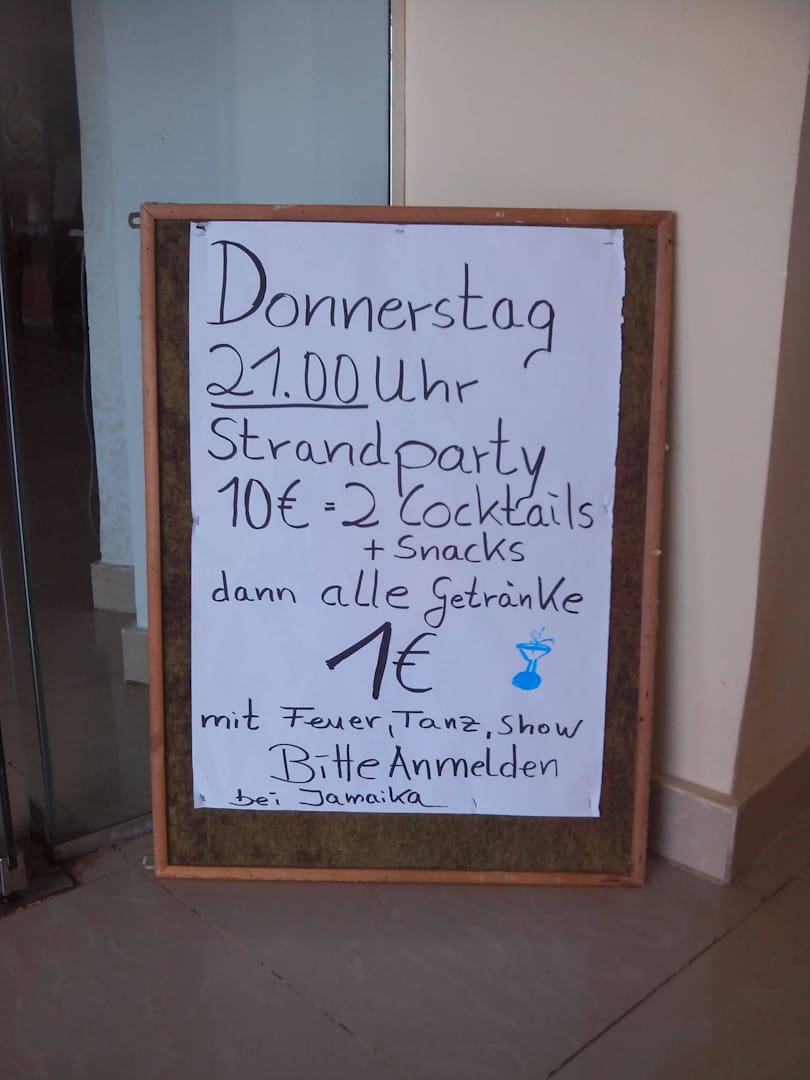 Donnerstag
21.00 Uhr
Strandparty
10€ = 2 Cocktails
+ Snacks
dann alle Getränke
1€
mit Feuer, Tanz, Show
Bitte Anmelden
bei Jamaika